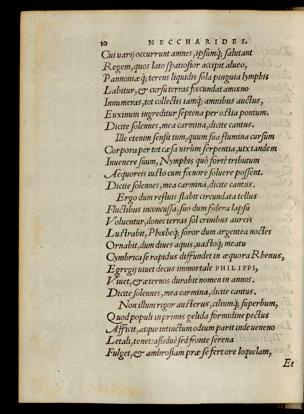 10 NECCHARIDES.
Cui uarij occurrunt amnes, ipsumq́; salutant
Regem, quos lato spatiosior accipit alueo,
Pannoniæq́; terens liquidis sola pinguia lymphis
Labitur, & cursu terras fœcundat amœno
Innumeras, tot collectis iamq́; amnibus auctus,
Euxinum ingreditur septena per ostia pontum.
Dicite solennes, mea carmina, dicite cantus.
Ille etenim sensit tum, quum sua flumina cursum
Corpora per tot cæsa uirûm serpentia, uix tandem
Inuenere suum, Nymphis quò fortè tributum
Aequoreis iusto cum fœnore soluere possent.
Dicite solennes, mea carmina, dicite cantus.
Ergo dum refluis stabit circundata tellus
Fluctibus inconcussa, suo dum sidera lapsu
Voluentur, donec terras sol crinibus aureis
Lustrabit, Phœbeq́; soror dum argentea noctes
Ornabit, dum diues aquis, uastoq́; meatu
Cymbrica se rapidus diffundet in æquora Rhenus,
Egregij uiuet decus immortale PHILIPPI,
Viuet, & æternos durabit nomen in annos.
Dicite solennes, mea carmina, dicite cantus.
Non illum rigor austerus, ciliumq́; superbum,
Quod populi in primis gelida formidine pectus
Afficit, atque intinctum odium parit inde ueneno
Letali, tenet: assiduè sed fronte serena
Fulget, & ambrosiam præ se fert ore loquelam,
Et